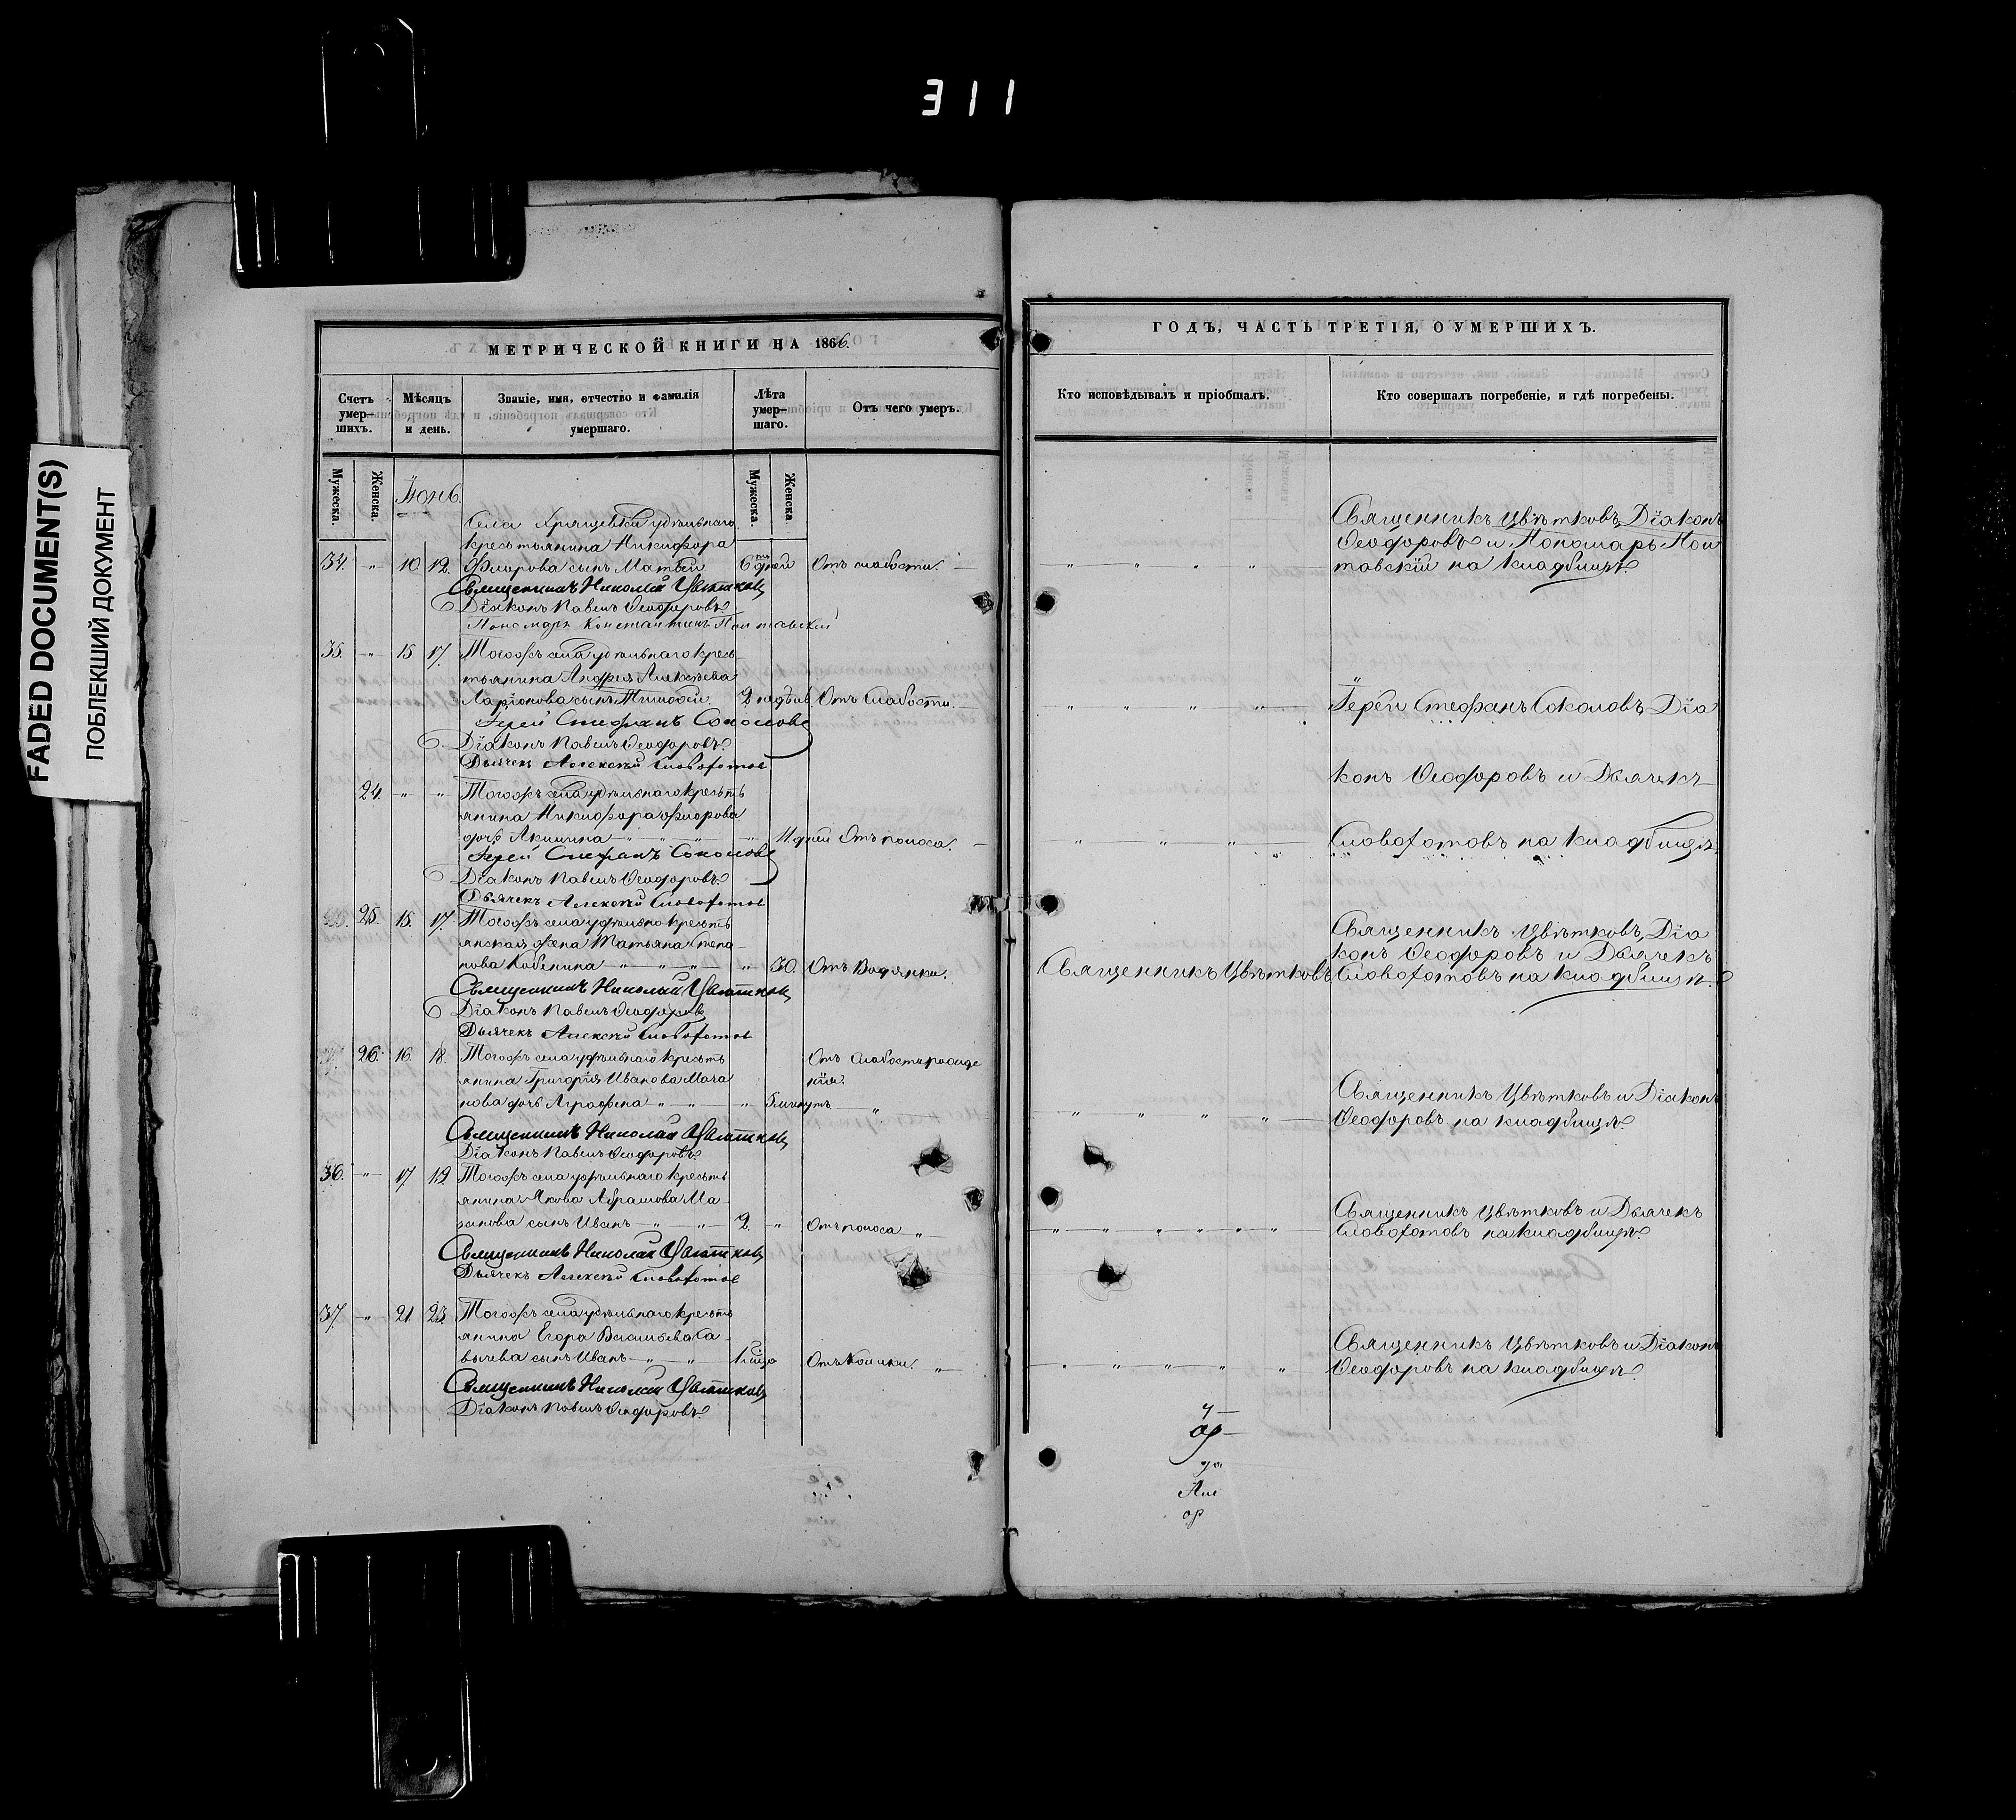 311
FADED DOCUMENT(S)
ПОБЛЕКШИЙ ДОКУМЕНТ
МЕТРИЧЕСКОЙ КНИГИ НА 1866.
Счетъ умер-шихъ.
Мѣсяцъ и день.
Званіе, имя, отчество и фамилія умершаго.
Лѣта умер-шаго.
Отъ чего умеръ.
Мужеска.
Женска.
Мужеска.
Женска
Іюнь.
Села Хрящевки удѣльнаго
крестьянина Никифора
34. " 10 12. Фролова сынъ Матвей 6 дней Отъ слабости.
Священникъ Николай Цвѣтковъ
Діаконъ Павелъ Ѳеодоровъ
Пономарь Константинъ Полтавскій
35. " 15 17. Тогожъ села удѣльнаго кресть-
янина Андрея Алексѣева
Ларіонова сынъ Тимоѳей. 2 недѣль Отъ слабости.
Іерей Стефанъ Соколовъ
Діаконъ Павелъ Ѳеодоровъ.
Дьячекъ Алексѣй Словохотов
24. " " Тогожъ села удѣльнаго кресть
янина Никифора Фролова
дочь Акилина " " " 11 дней Отъ поноса.
Іерей Стефанъ Соколовъ
Діаконъ Павелъ Ѳеодоровъ.
Дьячекъ Алексѣй Словохотов
25. 15. 17. Тогожъ села удѣльно кресть
янская жена Татьяна Степа-
нова Кобенина " " " " 30. Отъ Водянки.
Священникъ Николай Цвѣтковъ
Діаконъ Павелъ Ѳеодоровъ
Дьячекъ Алексѣй Словохотов
26. 16. 18. Тогожъ села удѣльнаго кресть Отъ слабости рожде
янина Григорія Иванова нія.
дочь Аграфена " " " 5 минутъ "
Священникъ Николай Цвѣтковъ
Діаконъ Павелъ Ѳеодоровъ.
36. " 17 19 Тогожъ села удѣльнаго кресть
янина Якова Абрамова Ма-
сынъ Иванъ " " 2. " Отъ поноса "
Священникъ Николай Цвѣтковъ
Дьячекъ Алексѣй Словохотов
37. " 21 23. Тогожъ села удѣльнаго кресть
янина Егора Васильева Са-
вычева сынъ Иванъ " " Отъ колики. "
Священникъ Николай Цвѣтковъ
Діаконъ Павелъ Ѳеодоровъ.
ГОДЪ, ЧАСТЬ ТРЕТІЯ, О УМЕРШИХЪ.
Кто исповѣдывалъ и пріобщалъ.
Кто совершалъ погребеніе, и гдѣ погребены.
Священникъ Цвѣтковъ, Діаконъ
Ѳеодоровъ и Пономарь Пол
" " " " тавскій на кладбищѣ.
" " " " Іерей Стефанъ Соколовъ, Діа
конъ Ѳеодоровъ и Дьячекъ
" " " Словохотовъ на кладбищѣ.
Священникъ Цвѣтковъ, Діа
конъ Ѳеодоровъ и Дьячекъ
Священникъ Цвѣтковъ Словохотовъ на кладбищѣ.
Священникъ Цвѣтковъ и Діаконъ
" " " " Ѳеодоровъ на кладбищѣ.
Священникъ Цвѣтковъ и Дьячекъ
" " " " " " Словохотовъ на кладбищѣ.
Священникъ Цвѣтковъ и Діаконъ
" " " " " Ѳеодоровъ на кладбищѣ.